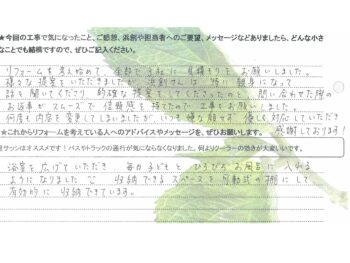 ★今回の工事で気になったこと、ご感想、浜創や担当者へのご要望、メッセージなどありましたら、どんな小さ
なことでも結構ですので、ぜひご記入ください。
リフォームを考え始めて、全部で3社に見積もりをお願いしました。
様々な提案をいただきましたが、浜創さんは特に親身になって
話を聞いてくださり、的確な提案をしてくださったのと、問い合わせた際の
お返事がスムーズで信頼感を持てたので工事をお願いしました。
何度も内容を変更してしまいましたが、いつも嫌な顔せず、優しく対応していただき
感謝しております!
★これからリフォームを考えている人へのアドバイスやメッセージを、ぜひお願いします。
サッシはオススメです!バスやトラックの通行が気にならなくなりました。何よりクーラーの効きが大変いいです。
浴室を広げていただき、毎日子どもとひろびろお風呂に入れる
ようになりました♡ 収納できるスペースを可動式の棚にして
有効的に収納できています。